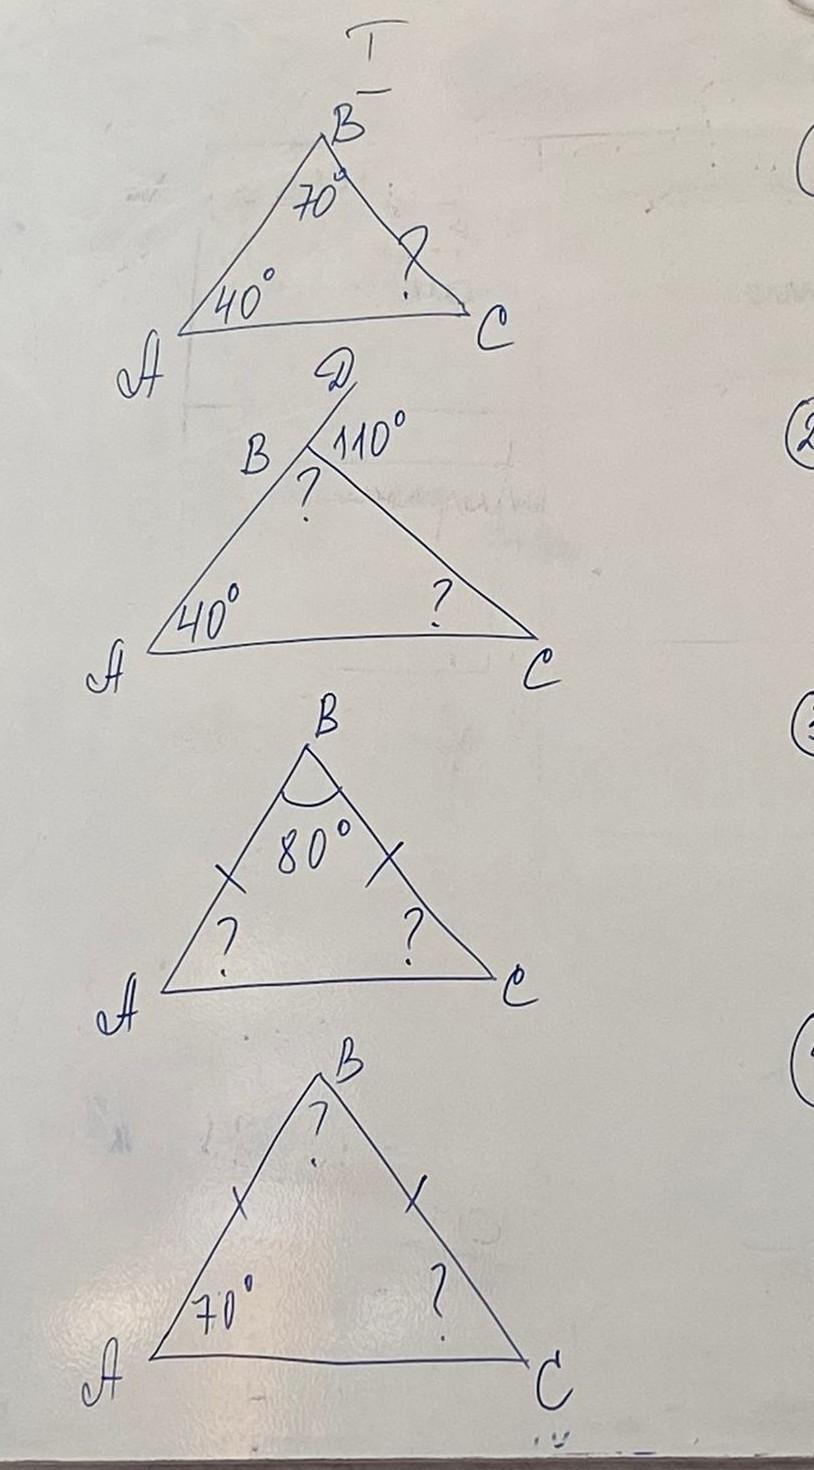 I
B
70°
40°
?
A
C
D
B
110°
?
40°
?
A
C
B
80°
?
?
A
C
B
?
70°
?
A
C